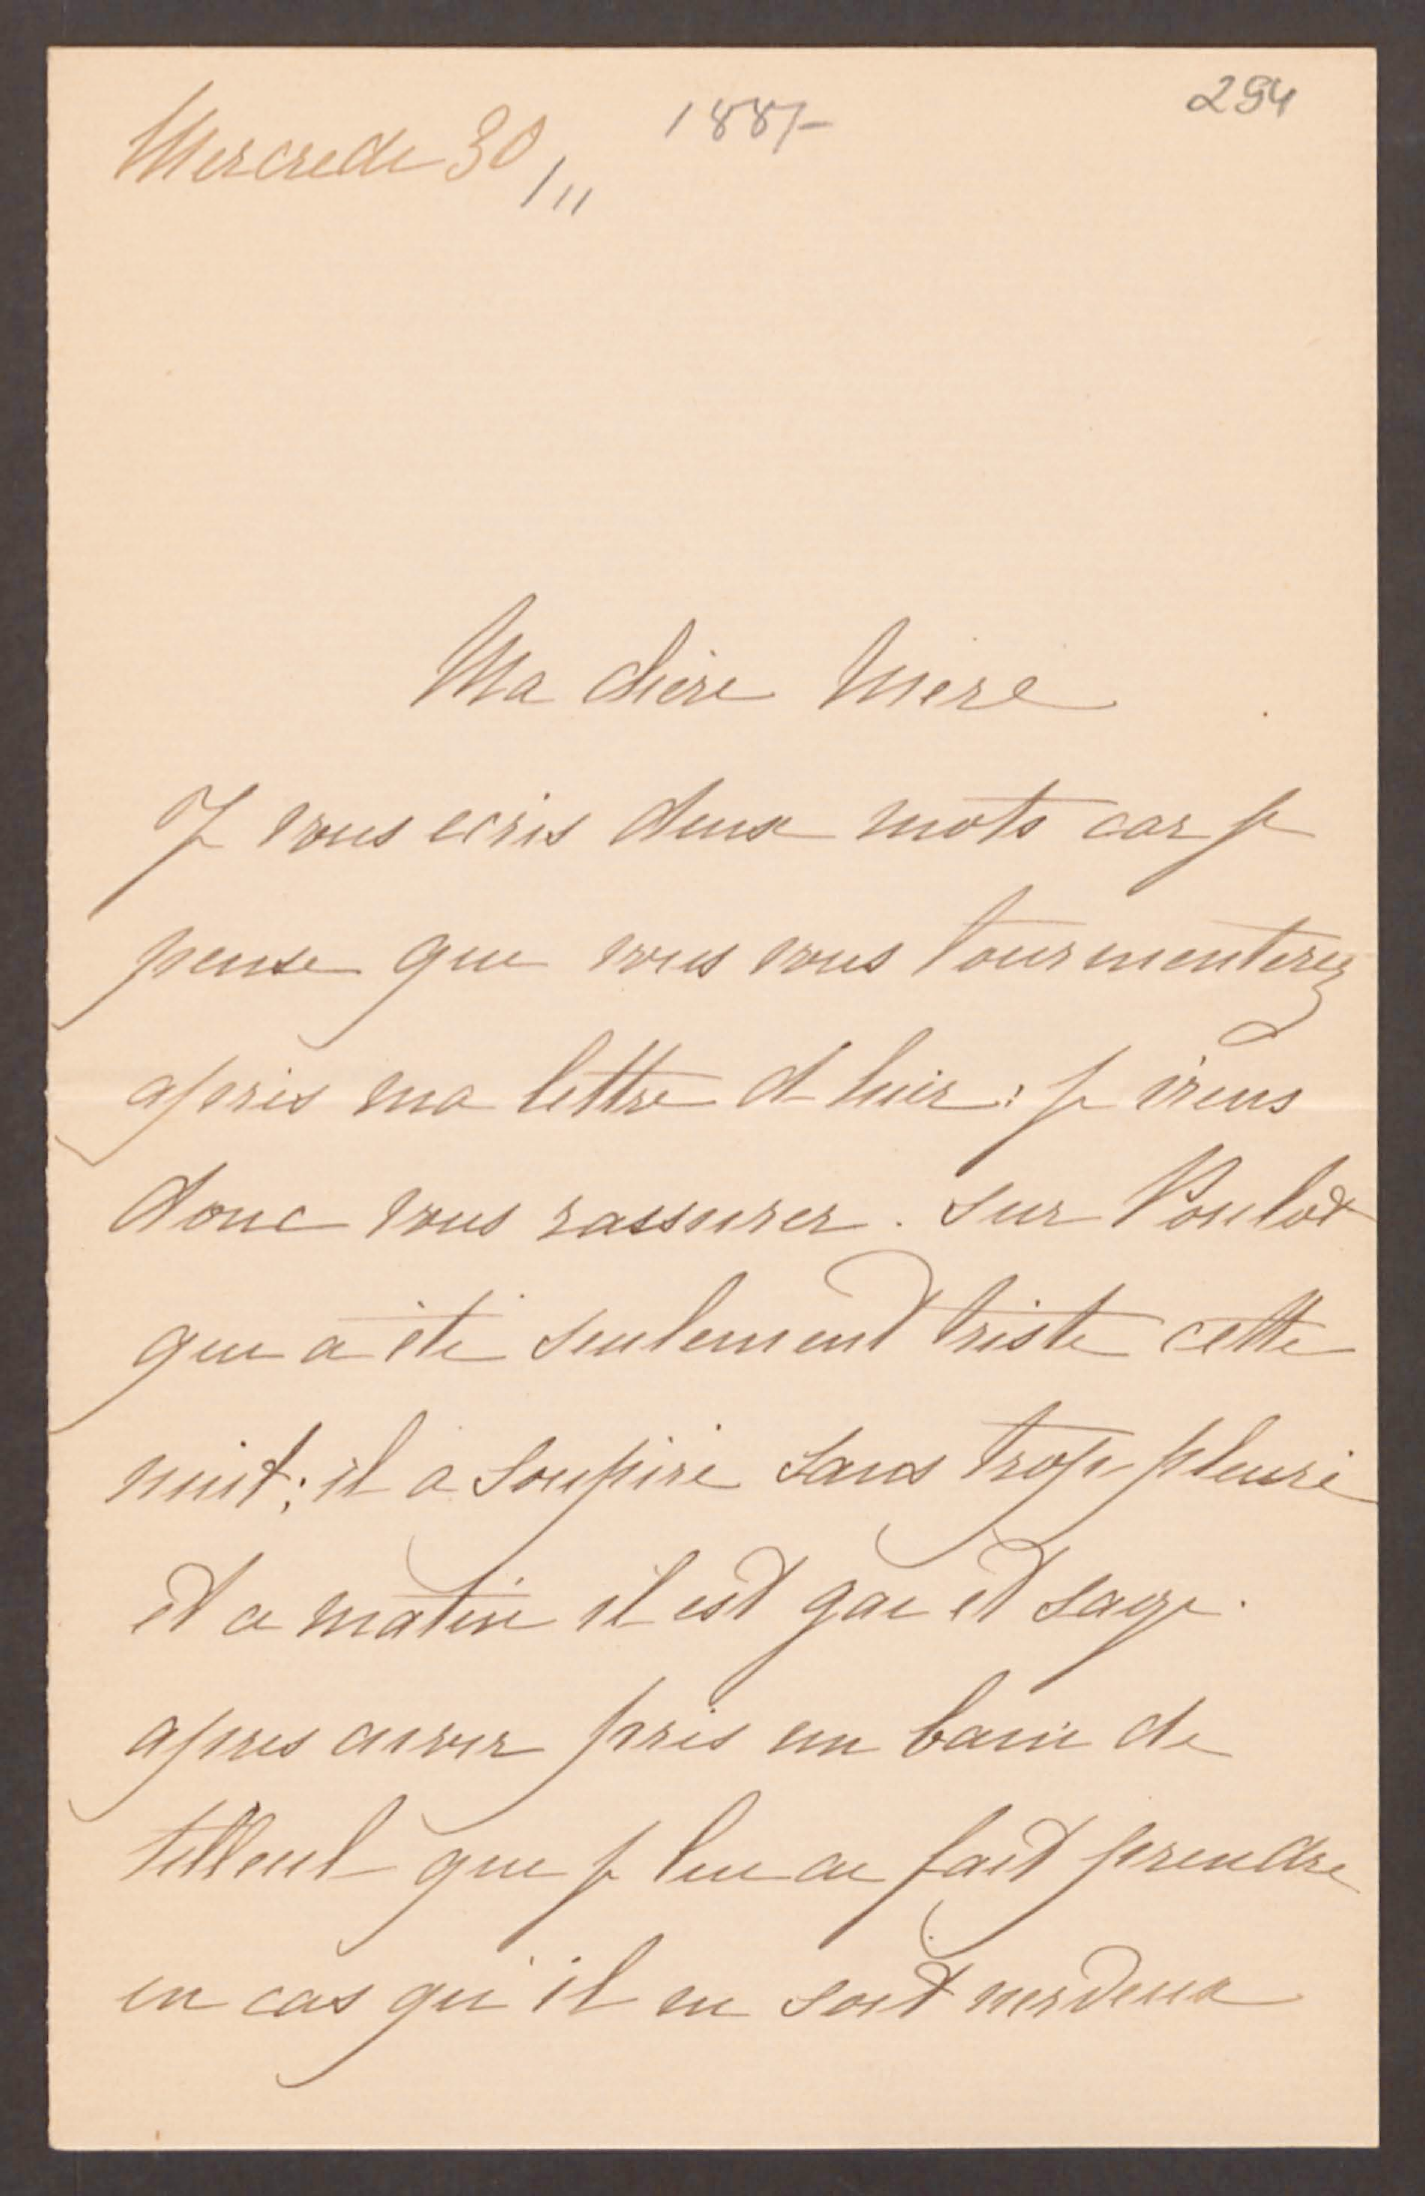 294
Mercredi 30/11 1887
Ma chère Mère
Je vous ecris deux mots car je
pense que vous vous tourmenterez
après ma lettre d'hier : je viens
donc vous rassurer. sur Poulot
qui a été seulement triste cette
nuit ; il a soupiré sans trop pleuré
et ce matin il est gai et sage.
apres avoir pris un bain de
tilleul que je lui ai fait prendre
en cas qu'il en soit nerveux